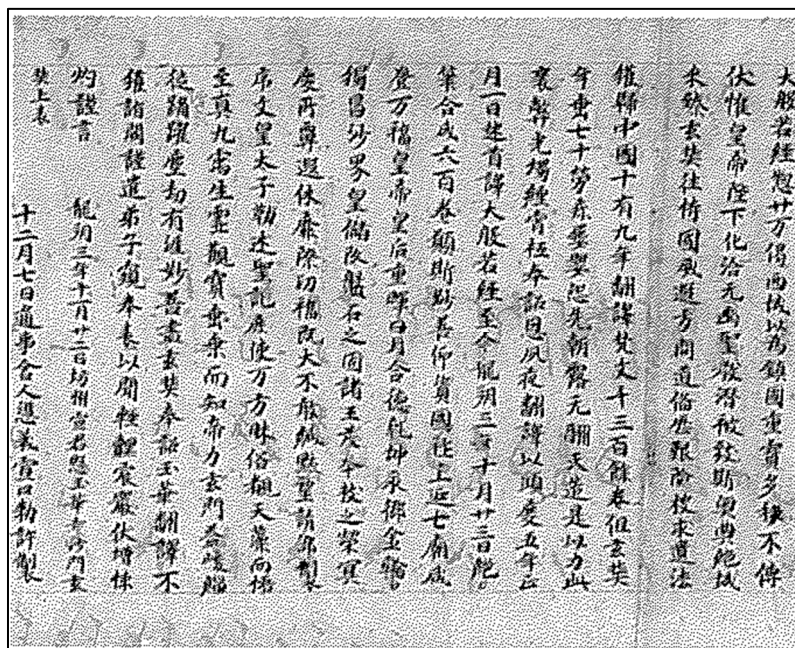 大般若經惣廿万偈西域以爲鎮國重寶多祕不傳
伏惟皇帝陛下化洽无幽聖嚴潛被致斯奧典絶域
來臻玄奘往恃國風遊方問道俻歷艱險搜求遺法
獲歸中國十有九年翻譯梵文千三百餘卷但玄奘
年垂七十勞疹嬰恐先朝露无酬天造是以力此
衰弊光燭經宵祗奉詔恩夙夜翻譯以顯慶五年正
月一日首譯大般若經至今龍朔三年十月廿三日絶
筆合成六百卷願斯妙善仰資國社上延七廟咸
登万福皇帝皇后重暉日月合德乾坤永御金輪
獨昌沙界皇儲磐石之固諸王茂本枝之榮冥
慶所遐休際功福既大不敢緘默望請御製
序文皇太子勒述聖記庶使万方昧俗覩天藻而悟
至真九霄生靈觀寶乘而知帝力玄門
踊躍塵劫有後妙善書玄奘奉詔玉華翻譯不
獲詣闕謹遣弟子窺奉表以聞輕觸宸嚴伏增悚
灼謹言 龍朔三年十一月廿二日坊州宜君縣玉華寺沙門玄
奘上表 十二月七日通事舍人馮義宣口勅許製